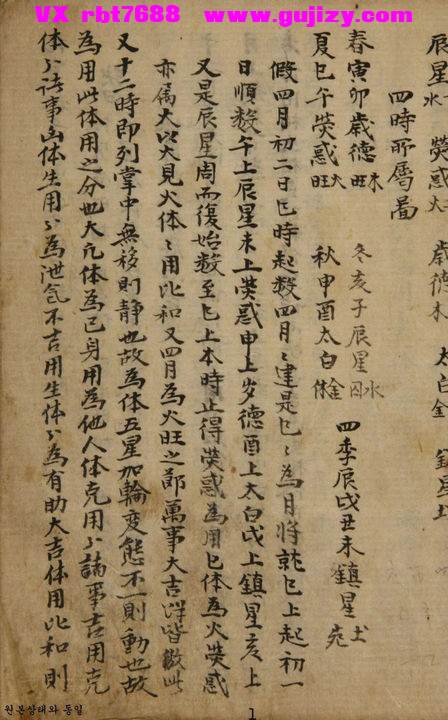 VX rbt7688 www.gujizy.com
辰星水 熒惑火 歲德木 太白金 鎮星土
四時所屬啚
春寅卯歲德木旺 冬亥子辰星水囚
夏巳午熒惑火旺 秋申酉太白金休 四季辰戌丑未鎮星土
假四月初二日巳時起数四月々建是巳々為月將就巳上起初一
日順数午上辰星未上熒惑申上歲德酉上太白戌上鎮星亥上
又是辰星周而復始数至巳上本時止得熒惑為用巳体為火熒惑
亦属火以火見火体々用比和又四月為火旺之節萬事大吉余皆倣此
又十二時即列掌中無移則静也故為体五星加輪変態不一則動也故
為用此体用之分也大凢体為已身用為他人体克用々諸事吉用克
体々諸事凶体生用々為泄氣不吉用生体々為有助大吉体用比和則
원본상태와 동일
1